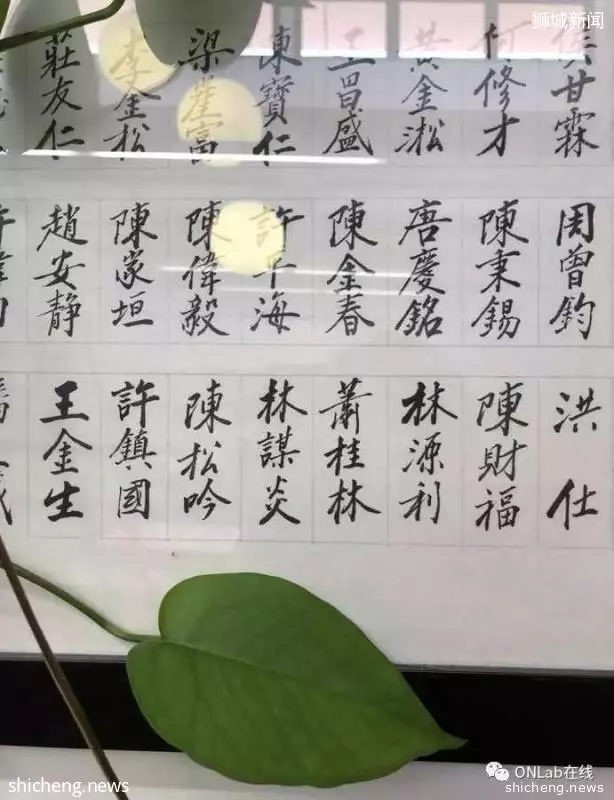 狮城新闻
甘霖
何修才
黄金淞
王昌盛
陳寶仁
梁崖富
李金松
莊友仁
周曾鈞
陳秉錫
唐慶銘
陳金春
許平海
陳偉毅
陳家垣
趙安静
洪仕
陳財福
林源利
蕭桂林
林謀炎
陳松吟
許鎮國
王金生
ONLab在线
shicheng.news
shicheng.news